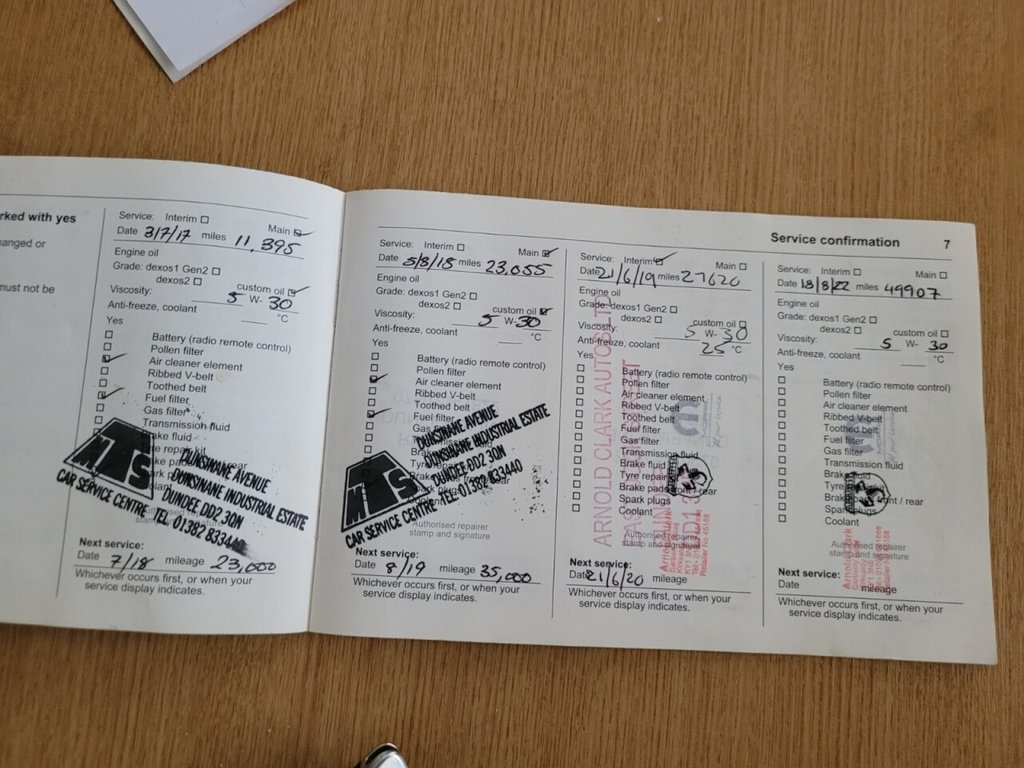 rked with yes
anged or
must not be
Service: Interim
Main
Date 3/7/17 miles 11,395
Engine oil
Grade: dexos1 Gen2
dexos2
custom oil
Viscosity: 5 W- 30
Anti-freeze, coolant °C
Yes
Battery (radio remote control)
Pollen filter
Air cleaner element
Ribbed V-belt
Toothed belt
Fuel filter
Gas filter
Transmission fluid
MTS
CAR SERVICE CENTRE
DUNSINANE AVENUE
DUNSINANE INDUSTRIAL ESTATE
DUNDEE DD2 3QN
TEL 01382 833440
stamp and signature
Next service:
Date 7/18 mileage 23,000
Whichever occurs first, or when your
service display indicates.
Service: Interim
Main
Date 5/8/18 miles 23,055
Engine oil
Grade: dexos1 Gen2
dexos2
custom oil
Viscosity: 5 W-30
Anti-freeze, coolant °C
Yes
Battery (radio remote control)
Pollen filter
Air cleaner element
Ribbed V-belt
Toothed belt
Fuel filter
Gas filter
MTS
CAR SERVICE CENTRE
DUNSINANE AVENUE
DUNSINANE INDUSTRIAL ESTATE
DUNDEE DD2 3QN
TEL 01382 833440
Authorised repairer
stamp and signature
Next service:
Date 8/19 mileage 35,000
Whichever occurs first, or when your
service display indicates.
Service confirmation 7
Service: Interim
Main
Date 21/6/19 miles 27620
Engine oil
Grade: dexos1 Gen2
dexos2
custom oil
Viscosity: 5 W- 30
Anti-freeze, coolant 25 °C
Yes
Battery (radio remote control)
Pollen filter
Air cleaner element
Ribbed V-belt
Toothed belt
Fuel filter
Gas filter
Transmission fluid
Brake fluid
Tyre repair
Brake pads front / rear
Spark plugs
Coolant
ARNOLD CLARK AUTOS LTD
Authorised repairer
stamp and signature
Next service:
Date 21/6/20 mileage
Whichever occurs first, or when your
service display indicates.
Service: Interim
Main
Date 18/8/22 miles 49907
Engine oil
Grade: dexos1 Gen2
dexos2
custom oil
Viscosity: 5 W- 30
Anti-freeze, coolant °C
Yes
Battery (radio remote control)
Pollen filter
Air cleaner element
Ribbed V-belt
Toothed belt
Fuel filter
Gas filter
Transmission fluid
Brake
Tyre
Brake front / rear
Spark plugs
Coolant
Arnold Clark
Authorised repairer
stamp and signature
Next service:
Date mileage
Whichever occurs first, or when your
service display indicates.